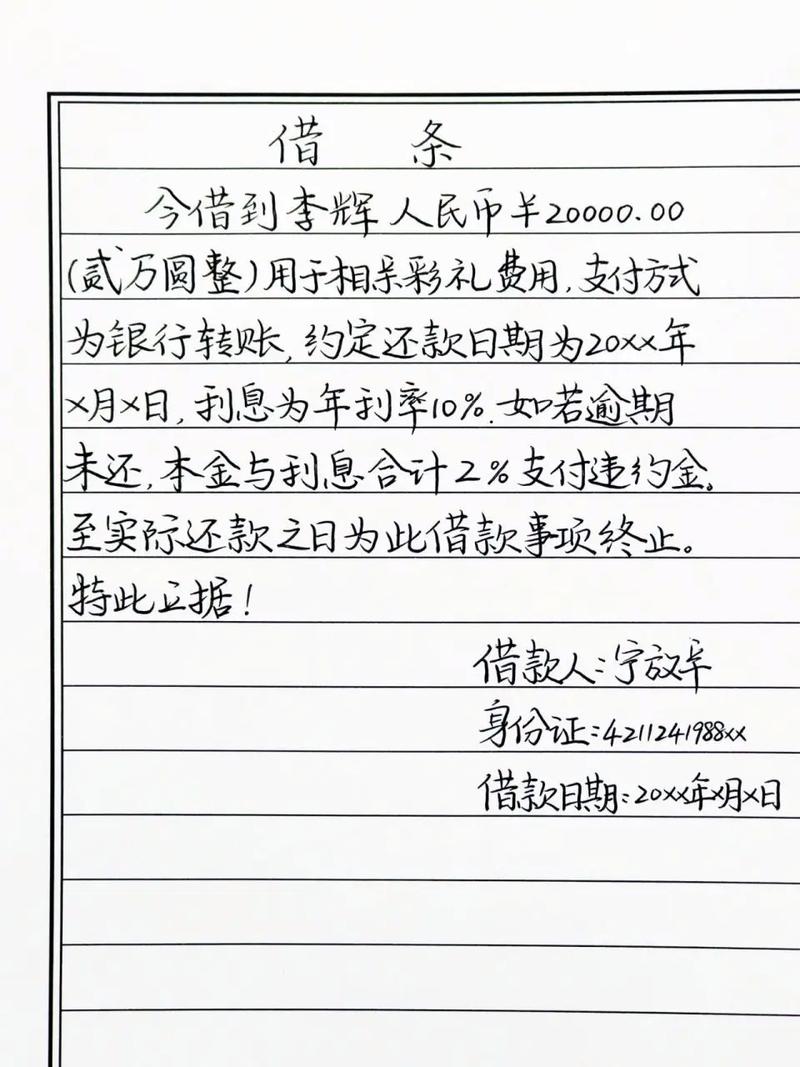 借 条
今借到李辉人民币¥20000.00
(贰万圆整)用于相亲彩礼费用,支付方式
为银行转账,约定还款日期为20xx年
x月x日,利息为年利率10%.如若逾期
未还,本金与利息合计2%支付违约金。
至实际还款之日为此借款事项终止。
特此立据!
借款人:宁放军
身份证:4211241988xx
借款日期:20xx年x月x日